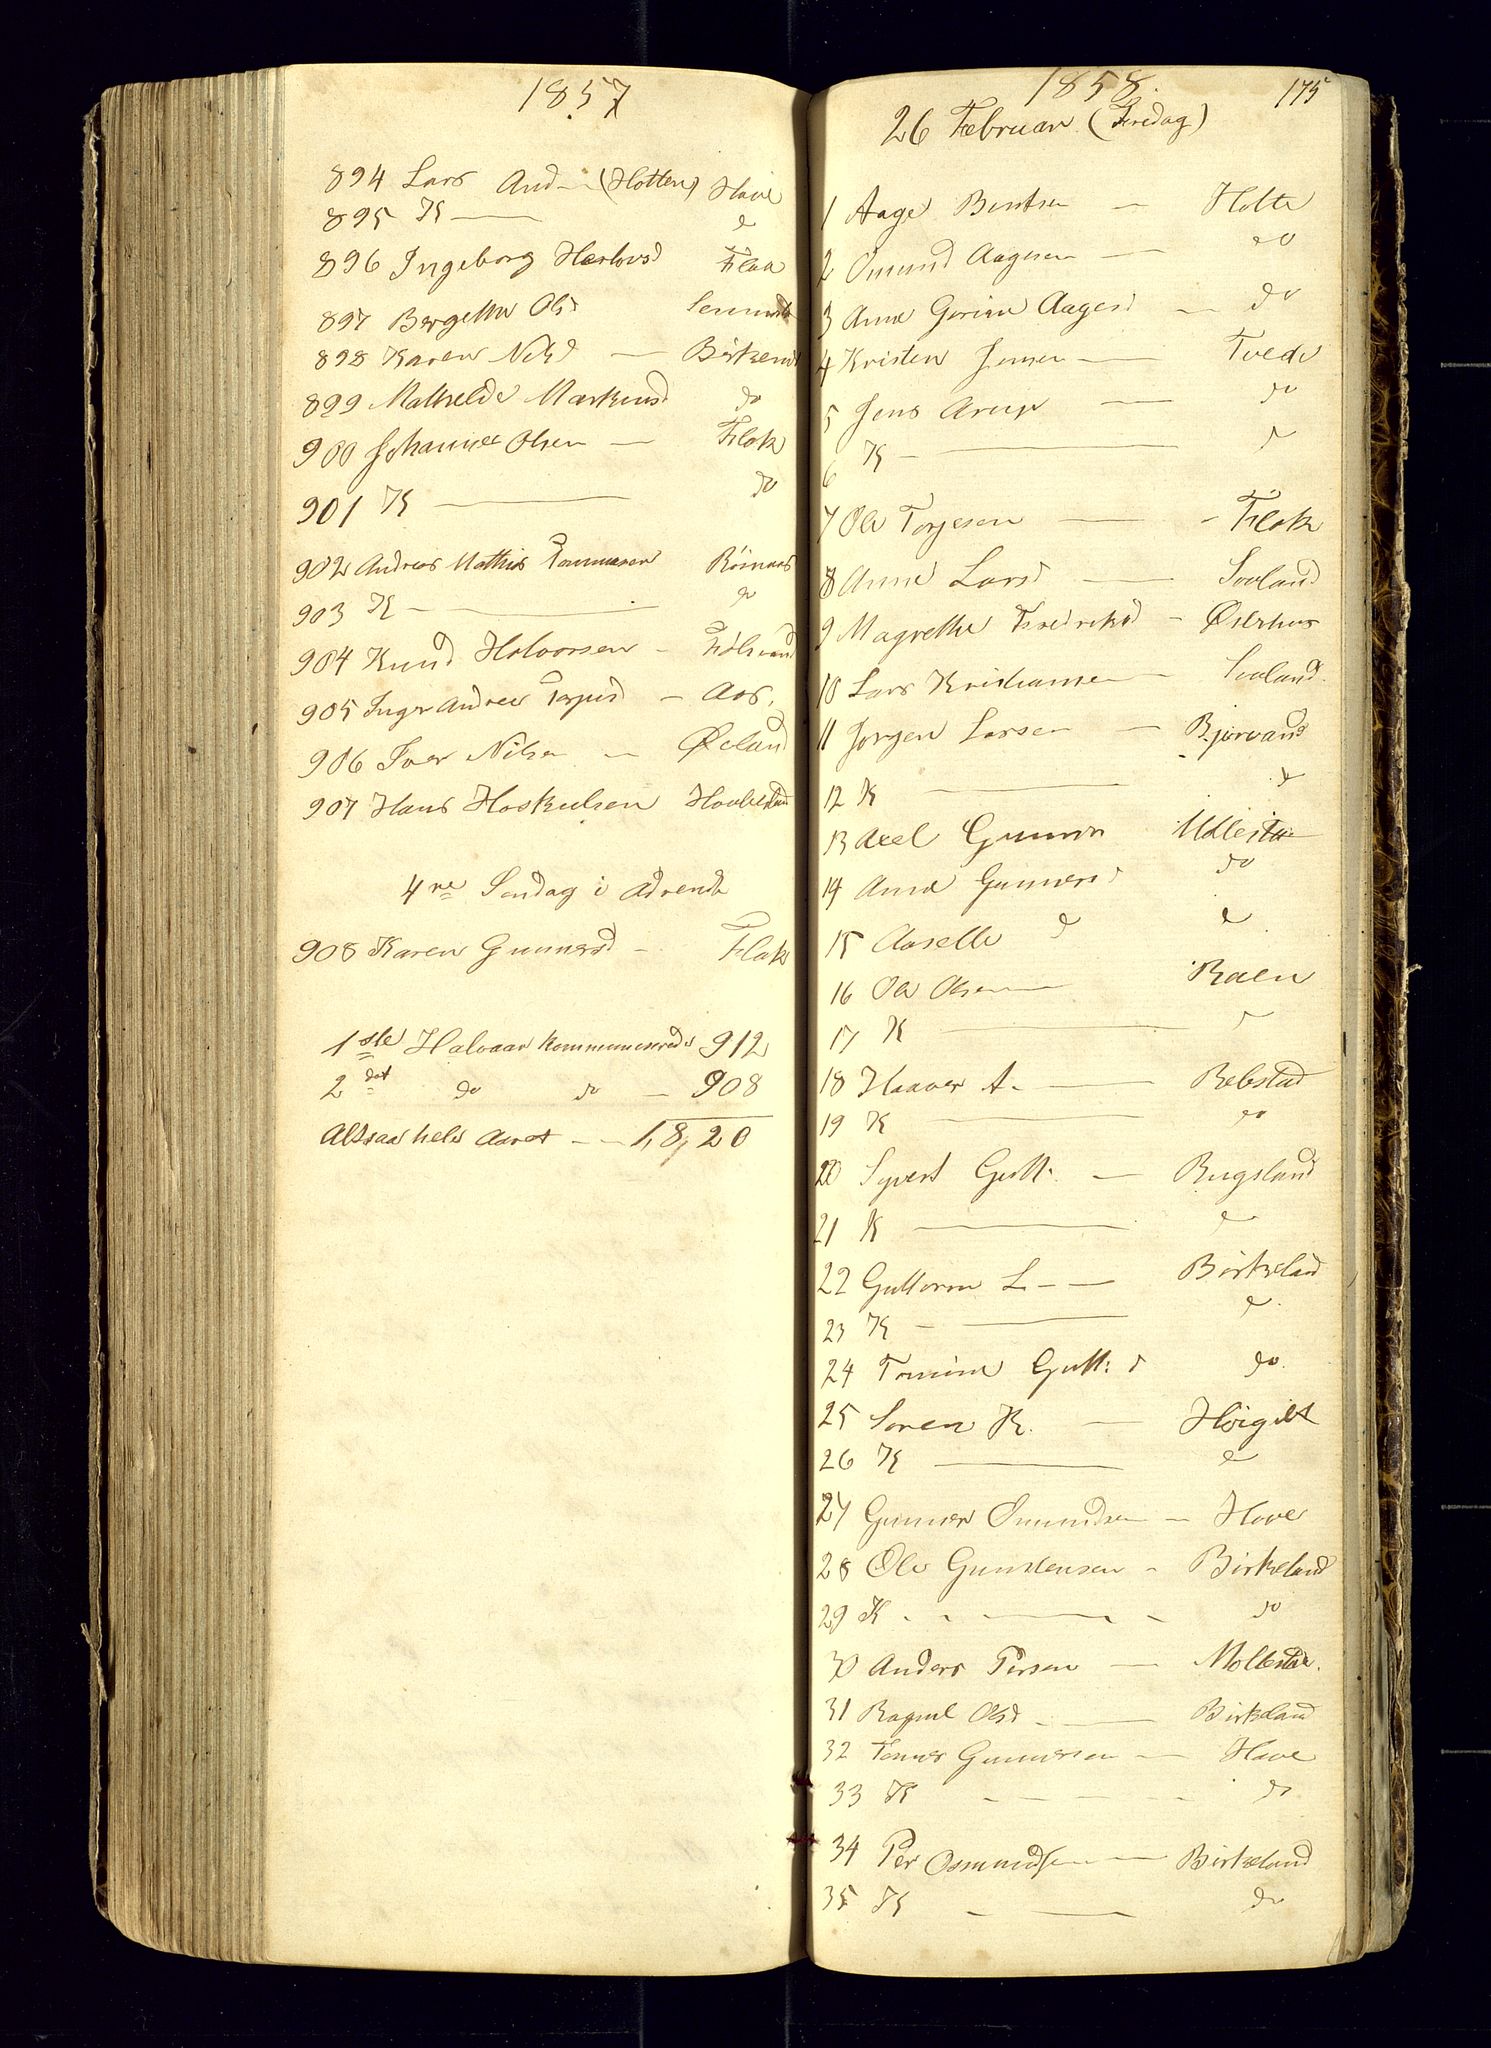 1857
894 Lars And — (Holten) Have
895 K — d
896 Ingeborg Herlovsd Flaa
897 Bergette Olsd
898 Karen Nilsd — Birkeland
899 Mathelde Markusd do
900 Johannes Olsen — Flak
901 K — do
902 Andreas Mathias Tommesen Rosnaas
903 K — do
904 Knud Halvorsen -
905 Inger Andrea Terjesd — Aas.
906 Iver Nilsen — Øeland
907 Hans Hoskulsen Haabesland
4re Sondag i Advendt
908 Karen Gunnersd - Flak
1ste Halvaar kommunicerede 912
2det do do — 908
Altsaa hele Aaret — 1,8,20
1858. 175
26 Februar (Fredag)
1 Aage Bentsen — Holte
2 Omund Aagesen — do
3 Anne Gorine Aagesd — do
4 Kristen Jensen — Tvede
5 Jens Arup — do
6 K — d
7 Ole Torjesen — Flak
8 Anne Larsd — Svaland
9 Magrethe Fredriksd - Østerhus
10 Lars Kristiansen — Svaland.
11 Jorgen Larsen — Bjorvand
12 K — d
13 Axel Gunner Mollesta
14 Anne Gunnersd do
15 Aaselle d d
16 Ole Olsen — Roen
17 K — d
18 Haaver A. — Rebstad
19 K — do
20 Syvert Gutt. — Rugsland
21 K — d
22 Guttorm L — — Birkeland
23 K — d
24 Tomine Gutt: d do
25 Soren K. — Hoigilt
26 K — d
27 Gunner Omundsen — Have
28 Ole Gunstensen - Birkeland
29 K — do
30 Anders Persen — Mollestad.
31 Ragnil Olsd — Birkeland
32 Tomes Gunnersen — Have
33 K — do
34 Per Osmundsen — Birkeland
35 K — do